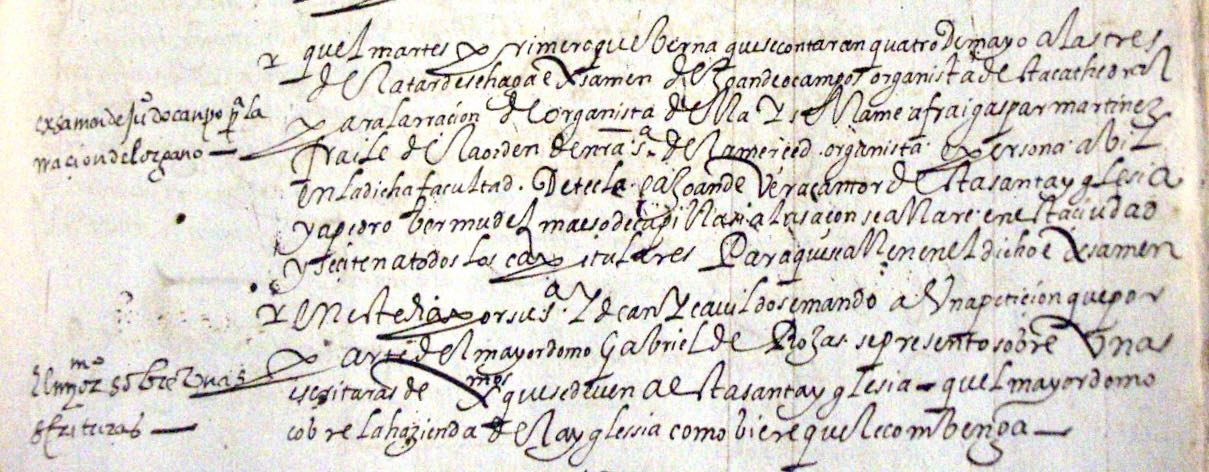 que el martes primero que berna que se contaran quatro de mayo a las tres
de la tarde se haga exsamen de Joan de ocampos organista de sta cathedral
para la rraçion de organista de lla Y se llame a frai gaspar martinez
fraile de la orden de nra sª de la merced organista persona abil
en la dicha facultad. De tecla. a Joan de Vera cantor de sta santa yglesia
y a pedro bermudez maeso de capilla si a la saçon se allare en esta ciudad
y se citen a todos los capitulares Para que se allen en el dicho exsamen
exsamen de juº do canpo pª la
rraçion del organo
En este dia por su sª Y dean Y cavildo se mando a Una petiçion que por
parte del mayordomo Gabriel de Rozas se presento sobre Unas
escrituras de que se deven a esta santa yglesia que el mayordomo
cobre la hazienda de la yglessia como biere que le combenga
El mºr sobre Unas
escrituras